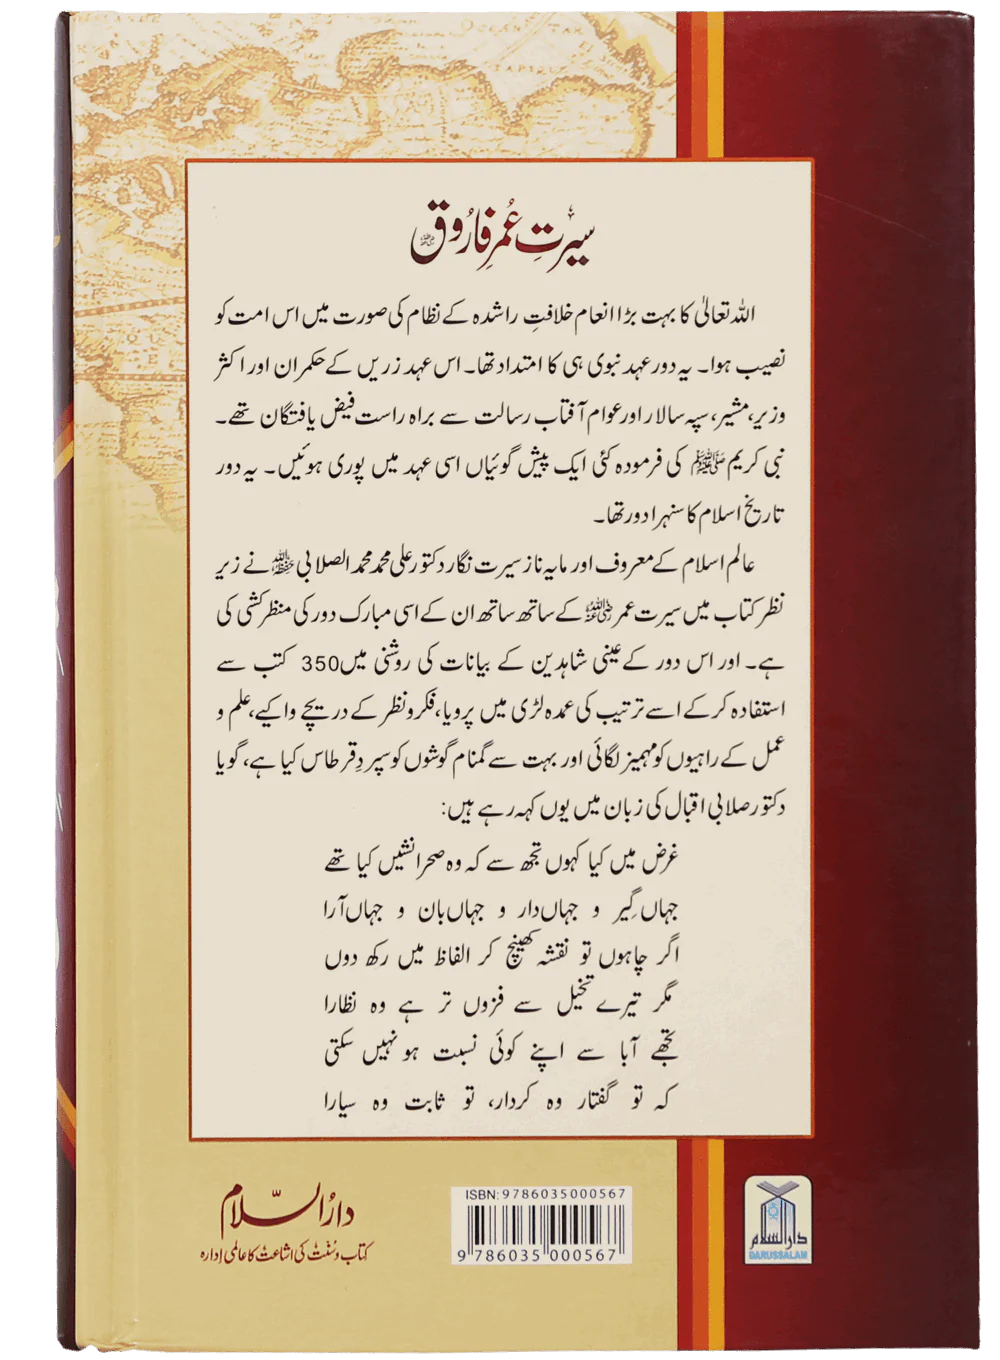 سیرتِ عُمرِ فارُوق رضی اللہ عنہ
اللہ تعالیٰ کا بہت بڑا انعام خلافتِ راشدہ کے نظام کی صورت میں اس امت کو
نصیب ہوا۔ یہ دور عہد نبوی ہی کا امتداد تھا۔ اس عہد زریں کے حکمران اور اکثر
وزیر، مشیر، سپہ سالار اور عوام آفتاب رسالت سے براہ راست فیض یافتگان تھے۔
نبی کریم ﷺ کی فرمودہ کئی ایک پیش گوئیاں اسی عہد میں پوری ہوئیں۔ یہ دور
تاریخ اسلام کا سنہرا دور تھا۔
عالم اسلام کے معروف اور مایہ ناز سیرت نگار دکتور علی محمد محمد الصلابی حفظہ اللہ نے زیر
نظر کتاب میں سیرت عمر رضی اللہ عنہ کے ساتھ ساتھ ان کے اسی مبارک دور کی منظر کشی کی
ہے۔ اور اس دور کے عینی شاہدین کے بیانات کی روشنی میں 350 کتب سے
استفادہ کر کے اسے ترتیب کی عمدہ لڑی میں پرویا، فکر و نظر کے دریچے وا کیے، علم و
عمل کے راہیوں کو مہمیز لگائی اور بہت سے گمنام گوشوں کو سپردِ قرطاس کیا ہے، گویا
دکتور صلابی اقبال کی زبان میں یوں کہہ رہے ہیں:
غرض میں کیا کہوں تجھ سے کہ وہ صحرا نشیں کیا تھے
جہاں گِیر و جہاں دار و جہاں بان و جہاں آرا
اگر چاہوں تو نقشہ کھینچ کر الفاظ میں رکھ دوں
مگر تیرے تخیل سے فزوں تر ہے وہ نظارا
تجھے آبا سے اپنے کوئی نسبت ہو نہیں سکتی
کہ تو گفتار وہ کردار، تو ثابت وہ سیارا
دارُالسّلام
کتاب و سُنّت کی اشاعت کا عالمی اِدارہ
ISBN: 9786035000567
9 786035 000567
دارالسلام
DARUSSALAM